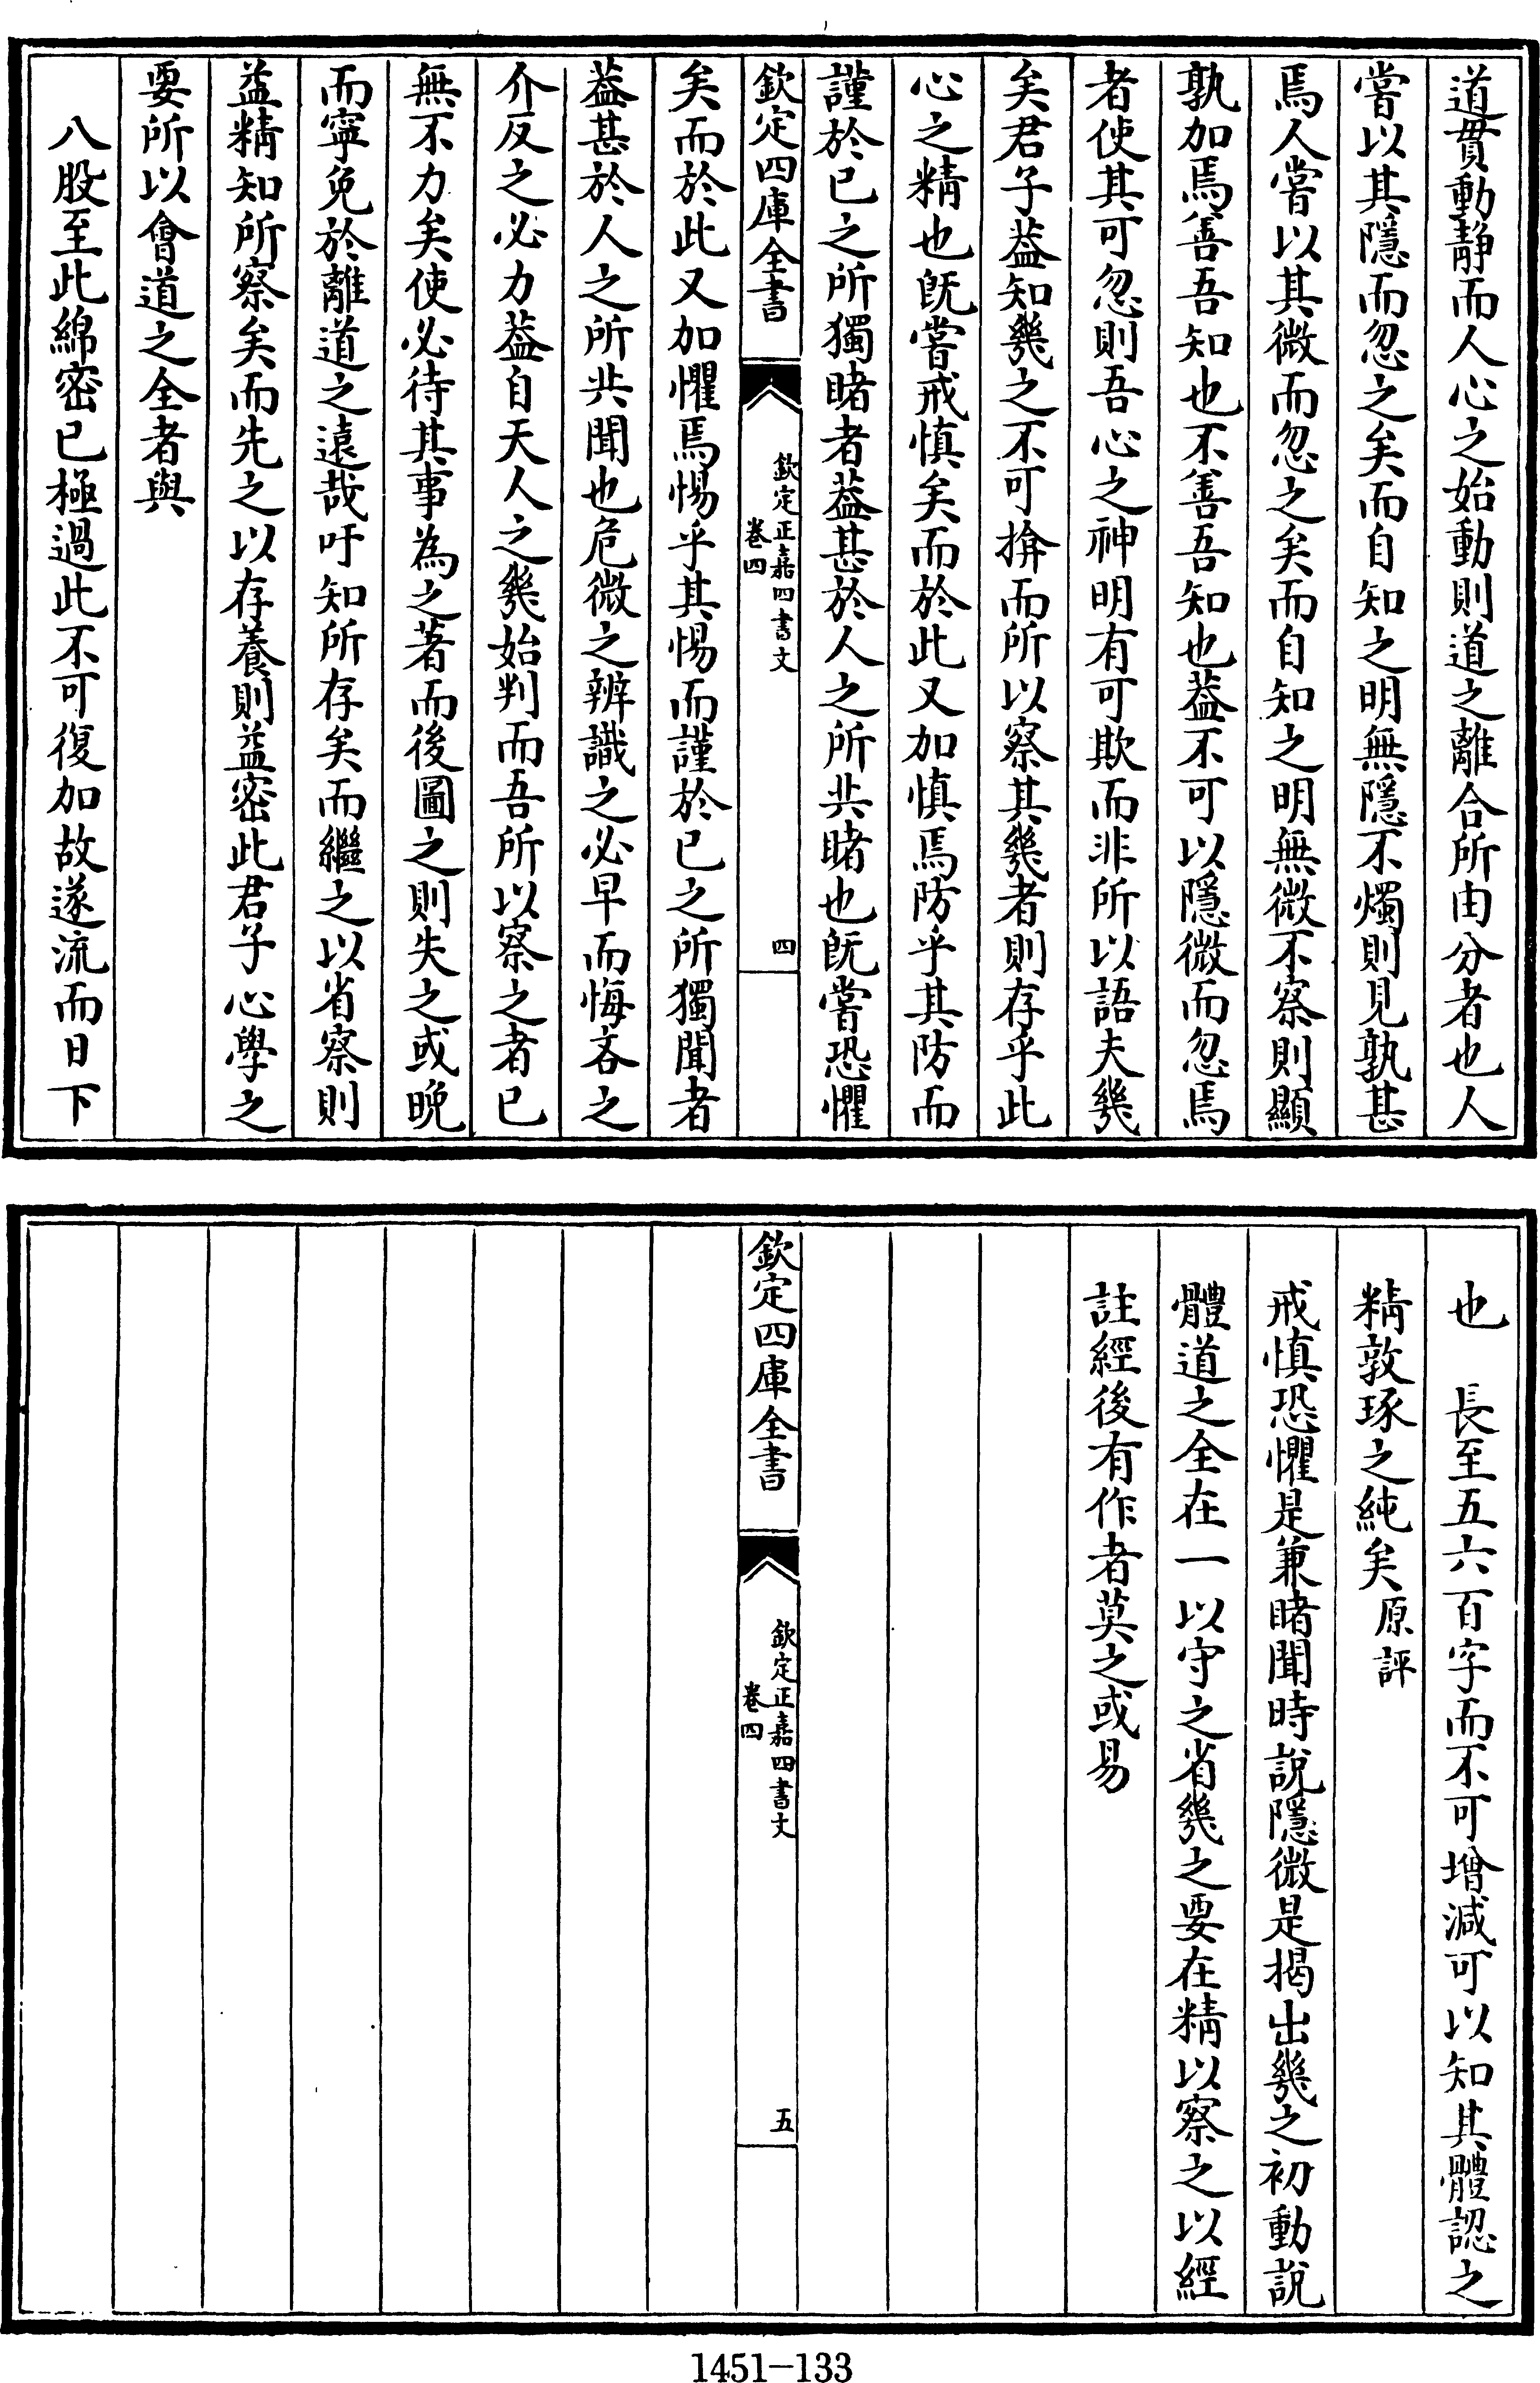 道貫動靜而人心之始動則道之離合所由分者也人
嘗以其隱而忽之矣而自知之明無隱不燭則見孰甚
焉人嘗以其微而忽之矣而自知之明無微不察則顯
孰加焉善吾知也不善吾知也葢不可以隱微而忽焉
者使其可忽則吾心之神明有可欺而非所以語夫幾
矣君子葢知幾之不可揜而所以察其幾者則存乎此
心之精也旣嘗戒慎矣而於此又加慎焉防乎其防而
謹於已之所獨睹者葢甚於人之所共睹也旣嘗恐懼
欽定四庫全書
欽定正嘉四書文
卷四
四
矣而於此又加懼焉惕乎其惕而謹於已之所獨聞者
葢甚於人之所共聞也危微之辨識之必早而悔吝之
介反之必力葢自天人之幾始判而吾所以察之者已
無不力矣使必待其事為之著而後圖之則失之或晩
而寧免於離道之遠哉吁知所存矣而繼之以省察則
益精知所察矣而先之以存養則益密此君子心學之
要所以會道之全者與
八股至此綿密已極過此不可復加故遂流而日下
也　長至五六百字而不可增減可以知其體認之
精敦琢之純矣原評
戒慎恐懼是兼睹聞時說隱微是揭出幾之初動說
體道之全在一以守之省幾之要在精以察之以經
註經後有作者莫之或易
欽定四庫全書
欽定正嘉四書文
卷四
五
1451-133